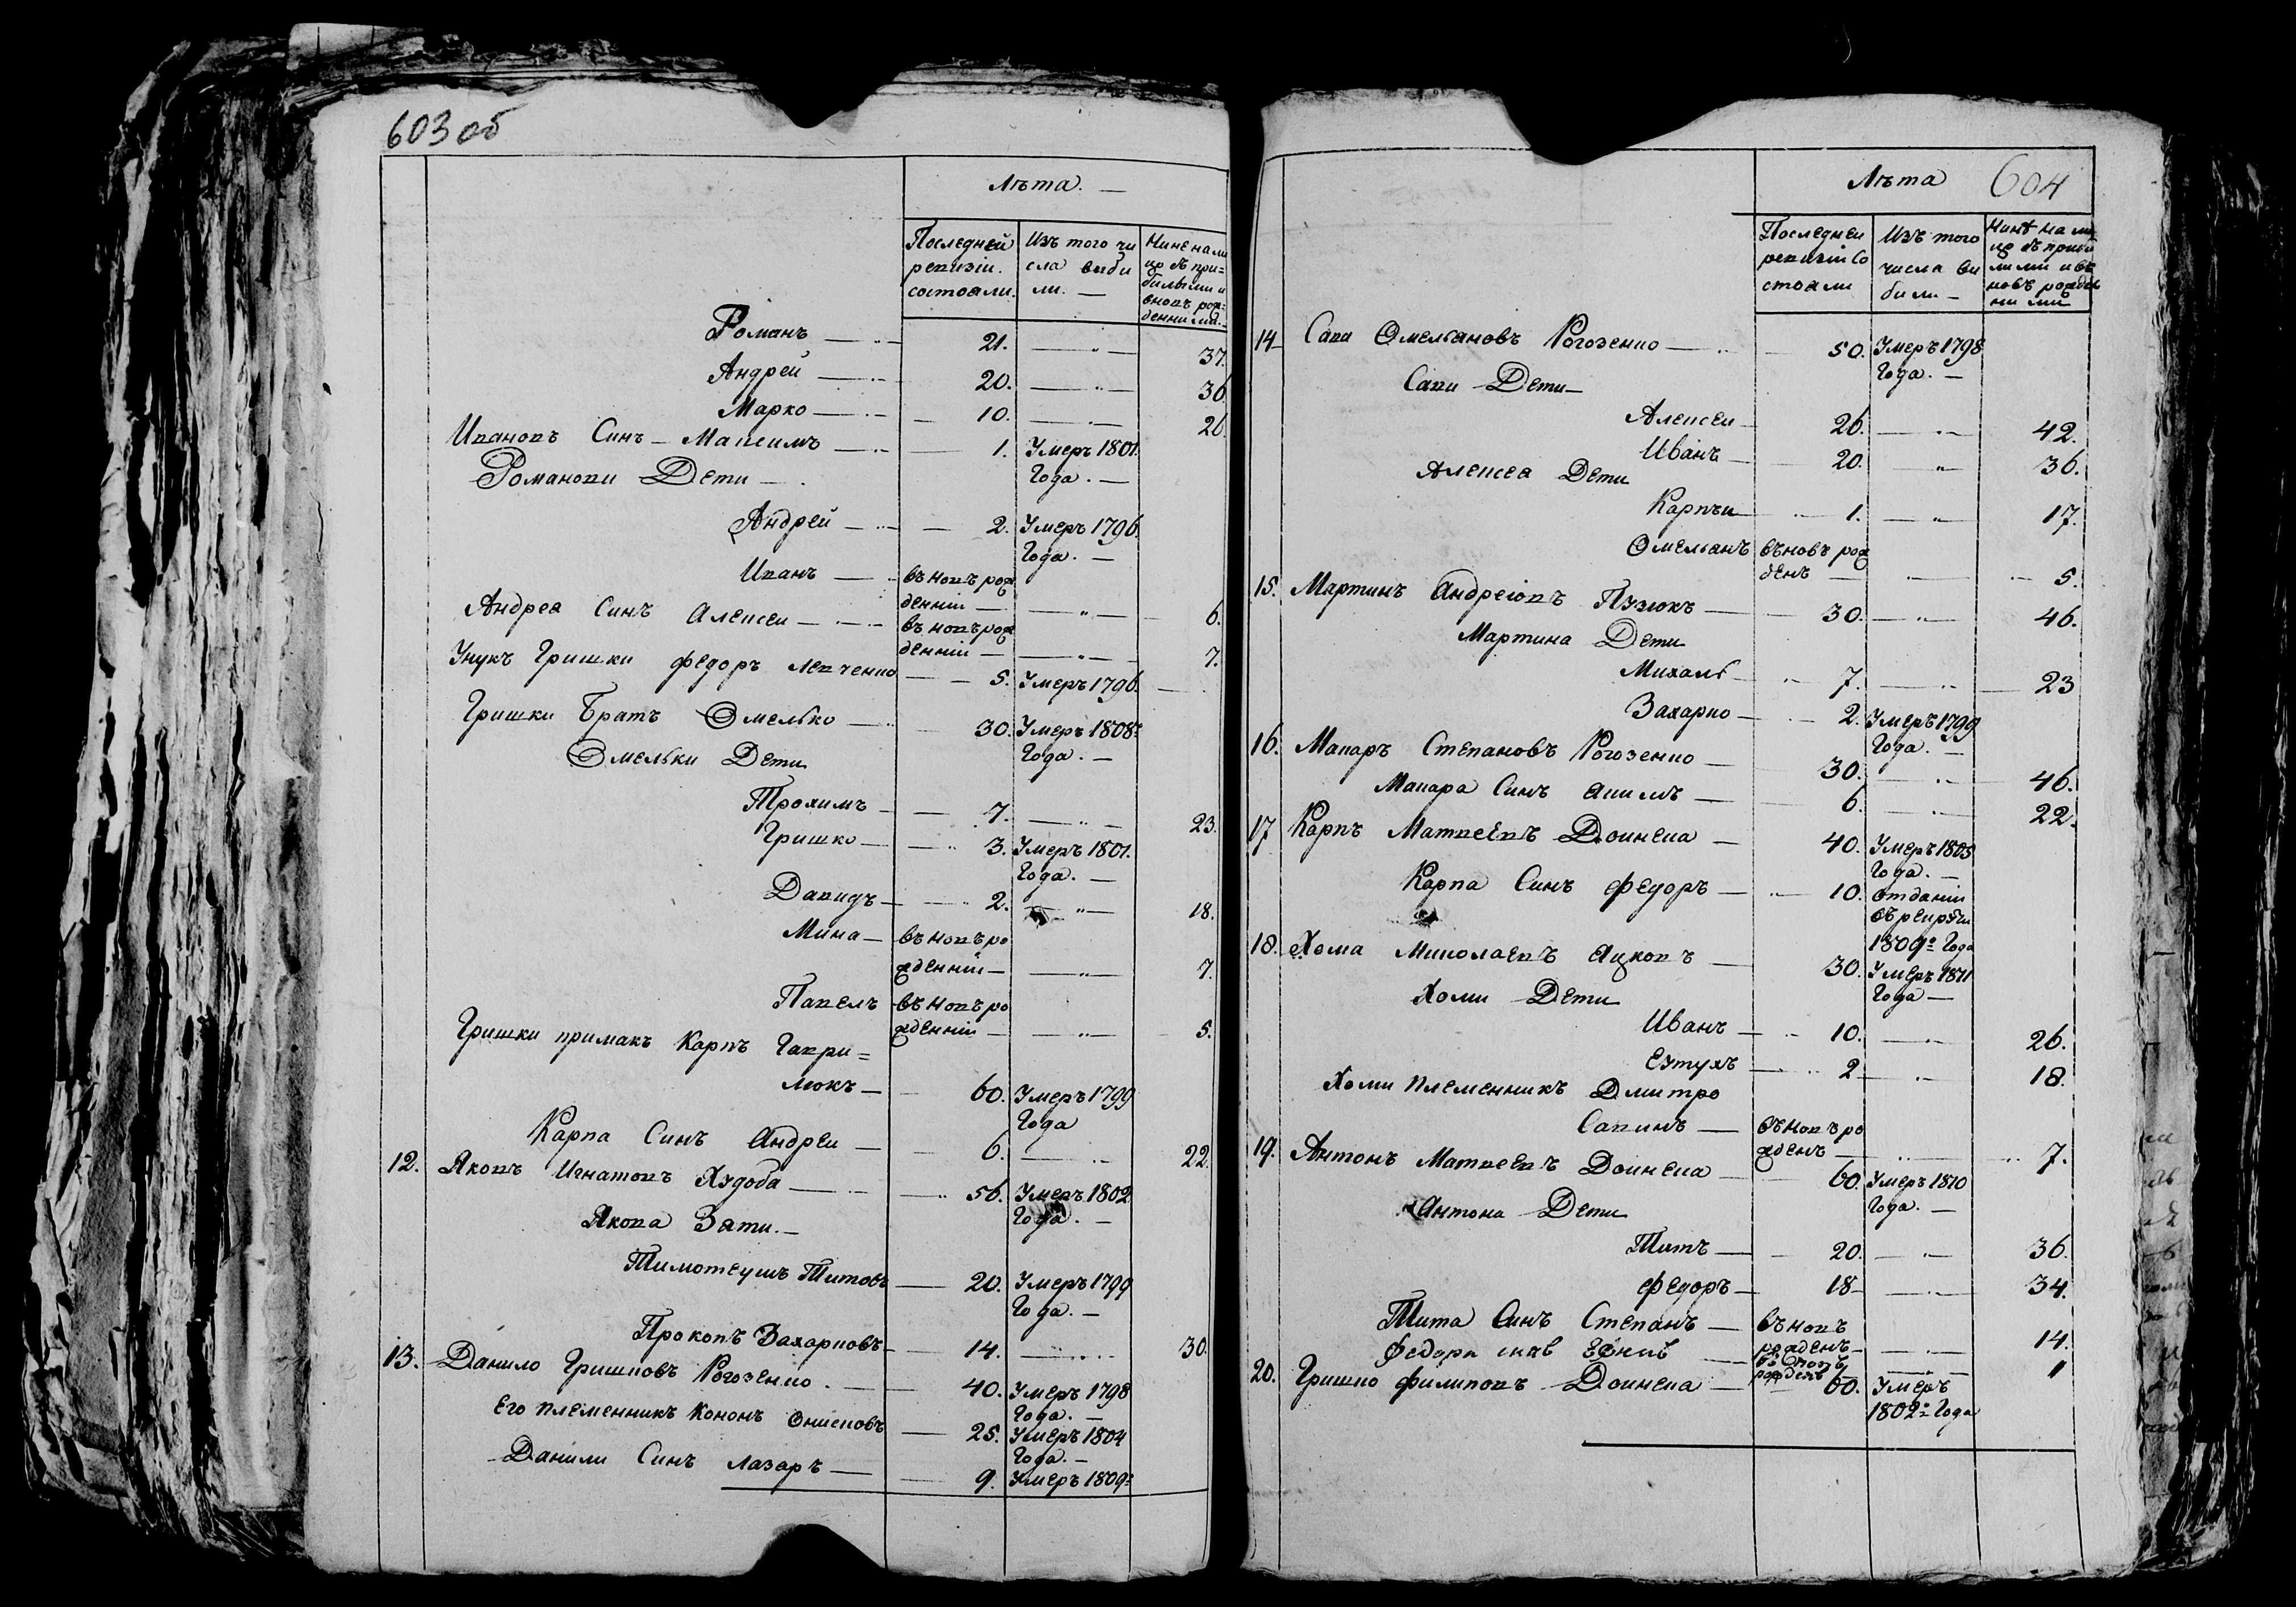 603 об
Лѣта. —
Последней ревизіи. состояли.
Изъ того числа выбыли. —
Нине на лицо съ прибилыми и вновъ рожденними. —
Романъ — 21. — 37.
Андрей — 20. — 36.
Марко — 10. — 26.
Ивановъ Синъ — Максимъ — 1. Умеръ 1801.
Романови Дети — Года. —
Андрей — 2. Умеръ 1796.
Года. —
Иванъ — въновъ рож
денній — 6.
Андрея Синъ Алексеи — въновъ рож
денній — 7.
Унукъ Гришки Федоръ Левченко — 5. Умеръ 1796. —
Гришки Братъ Омелько — 30. Умеръ 1808го
Омельки Дети Года. —
Трохимъ — 7. — 23.
Гришко — 3. Умеръ 1801.
Года. —
Давидъ — 2. — 18.
Мина — въновъ ро
жденній — 7.
Павелъ въновъ ро
жденній — 5.
Гришки примакъ Карпъ Гаври=
люкъ — 60. Умеръ 1799
Года
Карпа Синъ Андреи — 6. — 22.
12. Яковъ Игнатовъ Худоба — 56. Умеръ 1802
Якова Зяти. — Года. —
Тимотеушъ Титовъ — 20. Умеръ 1799
Года. —
Прокопъ Захарковъ — 14. — 30.
13. Данило Гришковъ Рогозенко. — 40. Умеръ 1798
Года. —
Его племенникъ Кононъ Онисковъ — 25. Умеръ 1804
Года. —
Данили Синъ Лазаръ — 9. Умеръ 1809го
Лѣта 604
Последнеи ревизіи состояли
Изъ того числа выбили —
Нинѣ на лицо съ прибилими и въновъ рожденними
14 Сави Омеляновъ Рогозенко — 50. Умеръ 1798
Года. —
Сави Дети —
Алексеи — 26. — 42.
Иванъ — 20. — 36.
Алексея Дети
Карпъи — 1. — 17.
Омельянъ въновъ рож
денъ — 5.
15. Мартинъ Андреіовъ Пузюкъ — 30. — 46.
Мартина Дети
Михаль — 7. — 23
Захарко — 2. Умеръ 1799
Года. —
16. Макаръ Степановъ Рогозенко — 30. — 46.
Макара Синъ Якимъ — 6. — 22.
17 Карпъ Матвеевъ Доинека — 40. Умеръ 1805
Года. —
Карпа Синъ Федоръ — 10. отданій
въ рекрути
1809го Года
18. Хома Миколаевъ Яцковъ — 30. Умеръ 1811
Года —
Хоми Дети
Иванъ — 10. — 26.
Евтухъ — 2 — 18.
Хоми племенникъ Дмитро
Савинъ — въновъ ро
жденъ — 7.
19. Антонъ Матвеевъ Доинека — 60. Умеръ 1810
Года. —
Антона Дети
Титъ — 20. — 36.
Федоръ — 18 — 34.
Тита Синъ Степанъ — въновъ
рожденъ — 14.
Федора синъ
въновъ
рожденъ 1
20. Гришко Филиповъ Доинека — 60. Умеръ
1802го Года